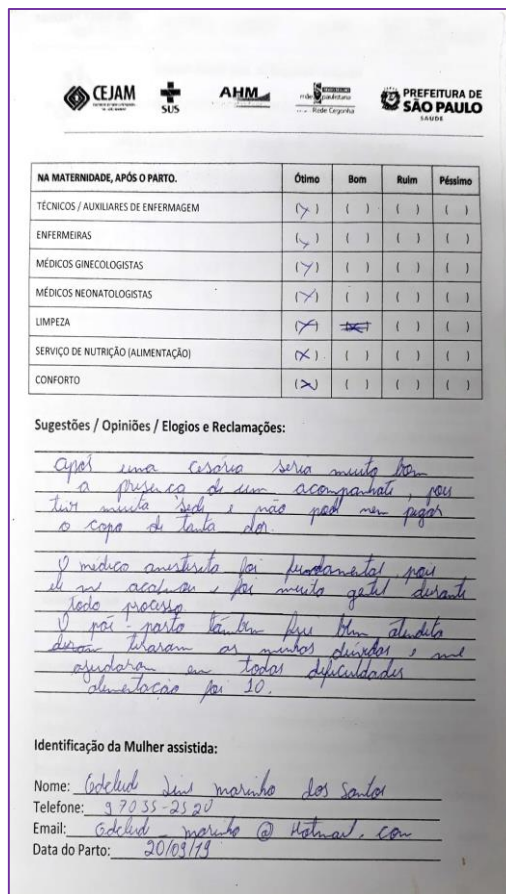 CEJAM
SUS
AHM
Rede Cegonha
PREFEITURA DE
SÃO PAULO
SAÚDE
NA MATERNIDADE, APÓS O PARTO. Ótimo Bom Ruim Péssimo
TÉCNICOS / AUXILIARES DE ENFERMAGEM (X) ( ) ( ) ( )
ENFERMEIRAS (X) ( ) ( ) ( )
MÉDICOS GINECOLOGISTAS (X) ( ) ( ) ( )
MÉDICOS NEONATOLOGISTAS (X) ( ) ( ) ( )
LIMPEZA (X) ( ) ( )
SERVIÇO DE NUTRIÇÃO (ALIMENTAÇÃO) (X) ( ) ( ) ( )
CONFORTO (X) ( ) ( ) ( )
Sugestões / Opiniões / Elogios e Reclamações:
após uma cesária seria muito bom
a presença de um acompanhate, pois
tive muita sede e não pode nem pegar
o copo de tanta dor.
O médico anestesista foi fundamental pois
ele me acalmou e foi muito getil durante
todo processo
O pós-parto também fui bem atendida
tiraram as minhas dúvidas e me
ajudaram em todas dificuldades
alimentação foi 10.
Identificação da Mulher assistida:
Nome: Lins marinho dos Santos
Telefone: 97035-2520
Email: marinho @ Hotmail. com
Data do Parto: 20/09/19